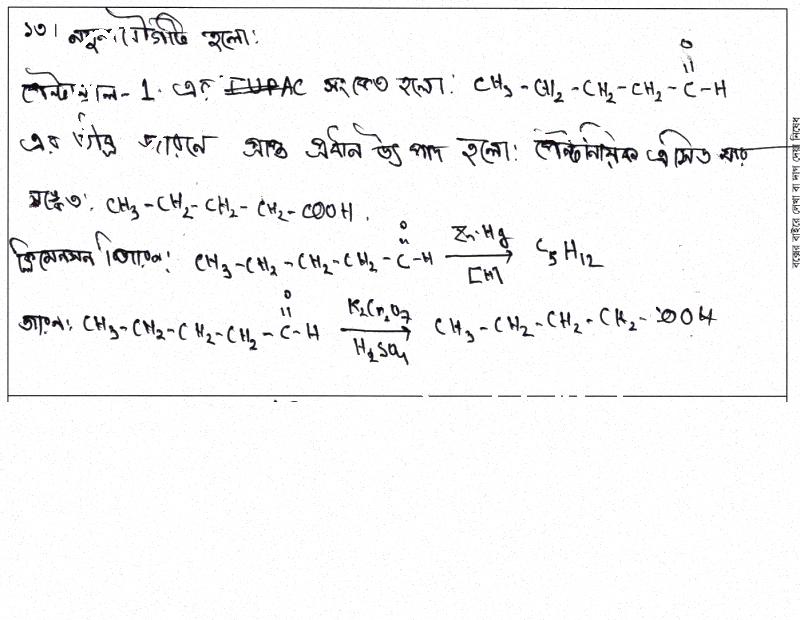 ১৩। নমুনা যৌগটি হলো:
পেন্টান্যাল-1. এর IUPAC সংকেত হলো: CH3 - CH2 - CH2 - CH2 - C(=O) - H
এর তীব্র জারনে প্রাপ্ত প্রধান উৎপাদ হলো: পেন্টানয়িক এসিড যার
সংকেত: CH3 - CH2 - CH2 - CH2 - COOH.
ক্লিমেনসন বিজারন: CH3 - CH2 - CH2 - CH2 - C(=O) - H Zn-Hg → [H] C5H12
জারন: CH3 - CH2 - CH2 - CH2 - C(=O) - H K2Cr2O7 → H2SO4 CH3 - CH2 - CH2 - CH2 - COOH
বক্সের বাইরে লেখা বা দাগ দেয়া নিষেধ